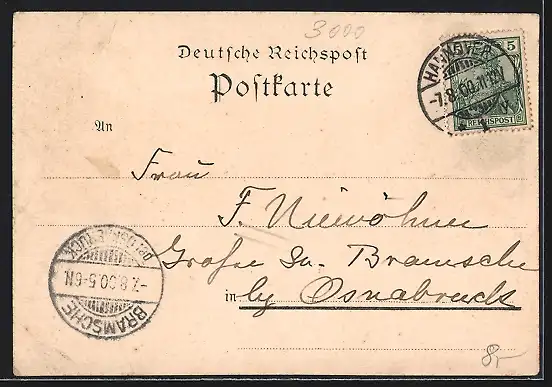 3000
Deutsche Reichspost
Postkarte
HANNOVER
-7.8.00.11-12V.
5
REICHSPOST
An
Frau
F. Niewöhner
Große Str. Bramsche
in by Osnabruck
BRAMSCHE
-7.8.00.5-6N
(BZ. OSNABRÜCK)
8,-